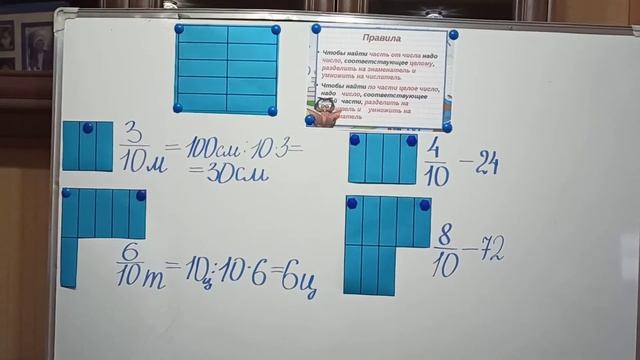 Правила
Чтобы найти часть от числа надо
число, соответствующее целому,
разделить на знаменатель и
умножить на числитель.
Чтобы найти по части целое число,
надо число, соответствующее
части, разделить на
и умножить на
3/10 м = 100см : 10·3 =
= 30см
4/10 – 24
6/10 т = 10ц : 10·6 = 6ц
8/10 – 72